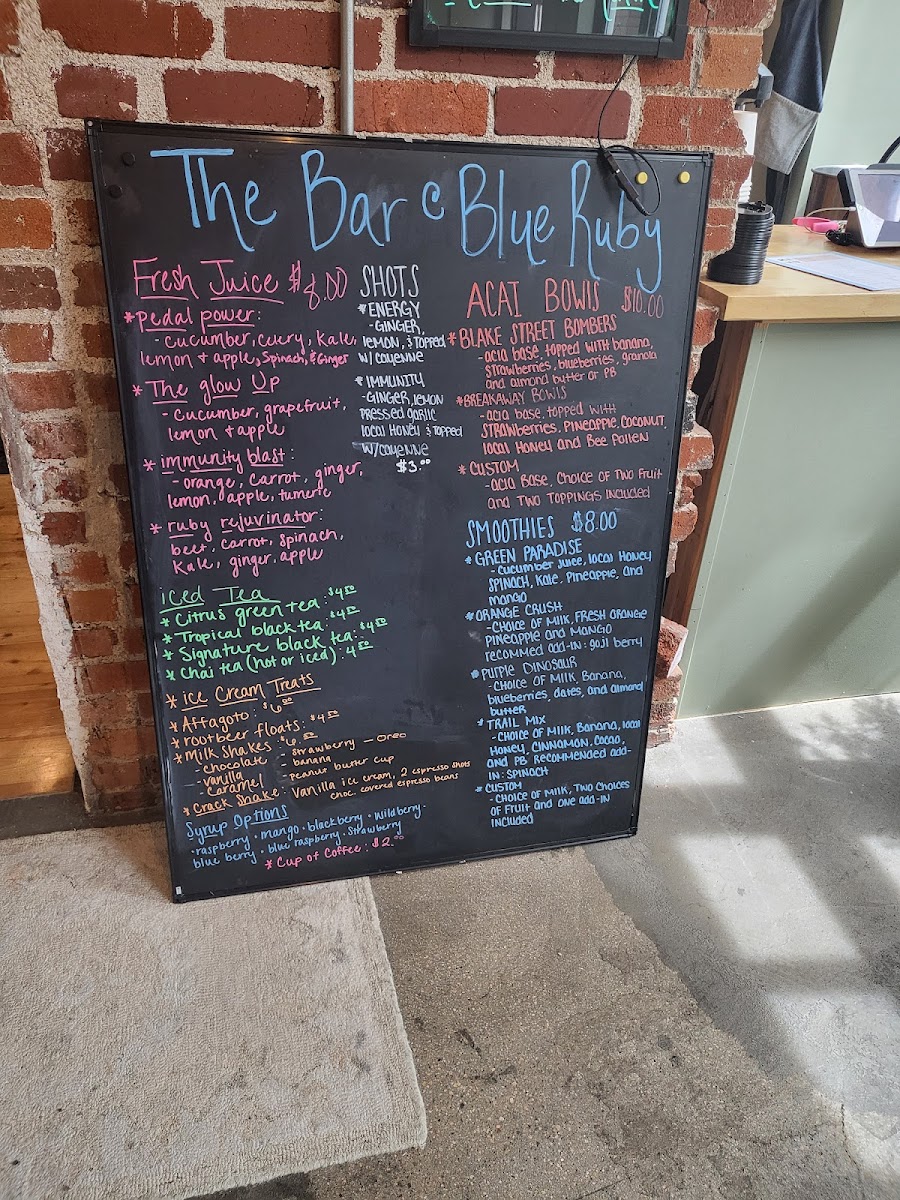 The Bar @ Blue Ruby
Fresh Juice $8.00
* Pedal power:
- cucumber, cucry, Kale,
lemon + apple, Spinach, & Ginger
* The glow Up
- cucumber, grapefruit,
lemon + apple
* immunity blast:
- orange, carrot, ginger,
lemon, apple, tumeric
* ruby rejuvinator:
beet, carrot, spinach,
Kale, ginger, apple
iced Tea
* Citrus green tea: $4.50
* Tropical black tea: $4.50
* Signature black tea: $4.50
* Chai tea (hot or iced): 4.50
* ice Cream Treats
* Affagoto: $6.00
* rootbeer floats: $4.50
* Milk shakes: $6.00
- chocolate - strawberry - oreo
- vanilla - banana
- caramel - Peanut butter cup
* Crack Shake: Vanilla ice cream, 2 espresso shots
choc. covered espresso beans
Syrup Options
· raspberry · mango · blackberry · wildberry ·
blue berry · blue raspberry · Strawberry
* Cup of Coffee: $2.00
SHOTS
* ENERGY
- GINGER,
lemon, & Topped
w/ cayenne
* IMMUNITY
- GINGER, lemon
pressed garlic
local Honey & Topped
w/ cayenne
$3.00
ACAI BOWlS $10.00
* BLAKE STREET BOMBERS
- acia base, topped with banana,
strawberries, blueberries, granola
and almond butter or PB
* BREAKAWAY BOWlS
- acia base, topped with
strawberries, pineapple, coconut,
local Honey and Bee Pollen
* CUSTOM
- acia Base, Choice of Two Fruit
and Two toppings included
SMOOTHIES $8.00
* GREEN PARADISE
- Cucumber Juice, local Honey
spinach, Kale, Pineapple, and
mango
* ORANGE CRUSH
- Choice of Milk, Fresh orange
Pineapple and Mango
recommed add-in: goji berry
* PURPLE DINOSAUR
- Choice of Milk, Banana,
blueberries, dates, and almond
butter
* TRAIL MIX
- Choice of Milk, Banana, local
Honey, Cinnamon, Cacao,
and PB recommended add-
in: spinach
* CUSTOM
- Choice of Milk, two choices
of Fruit and one add-in
included